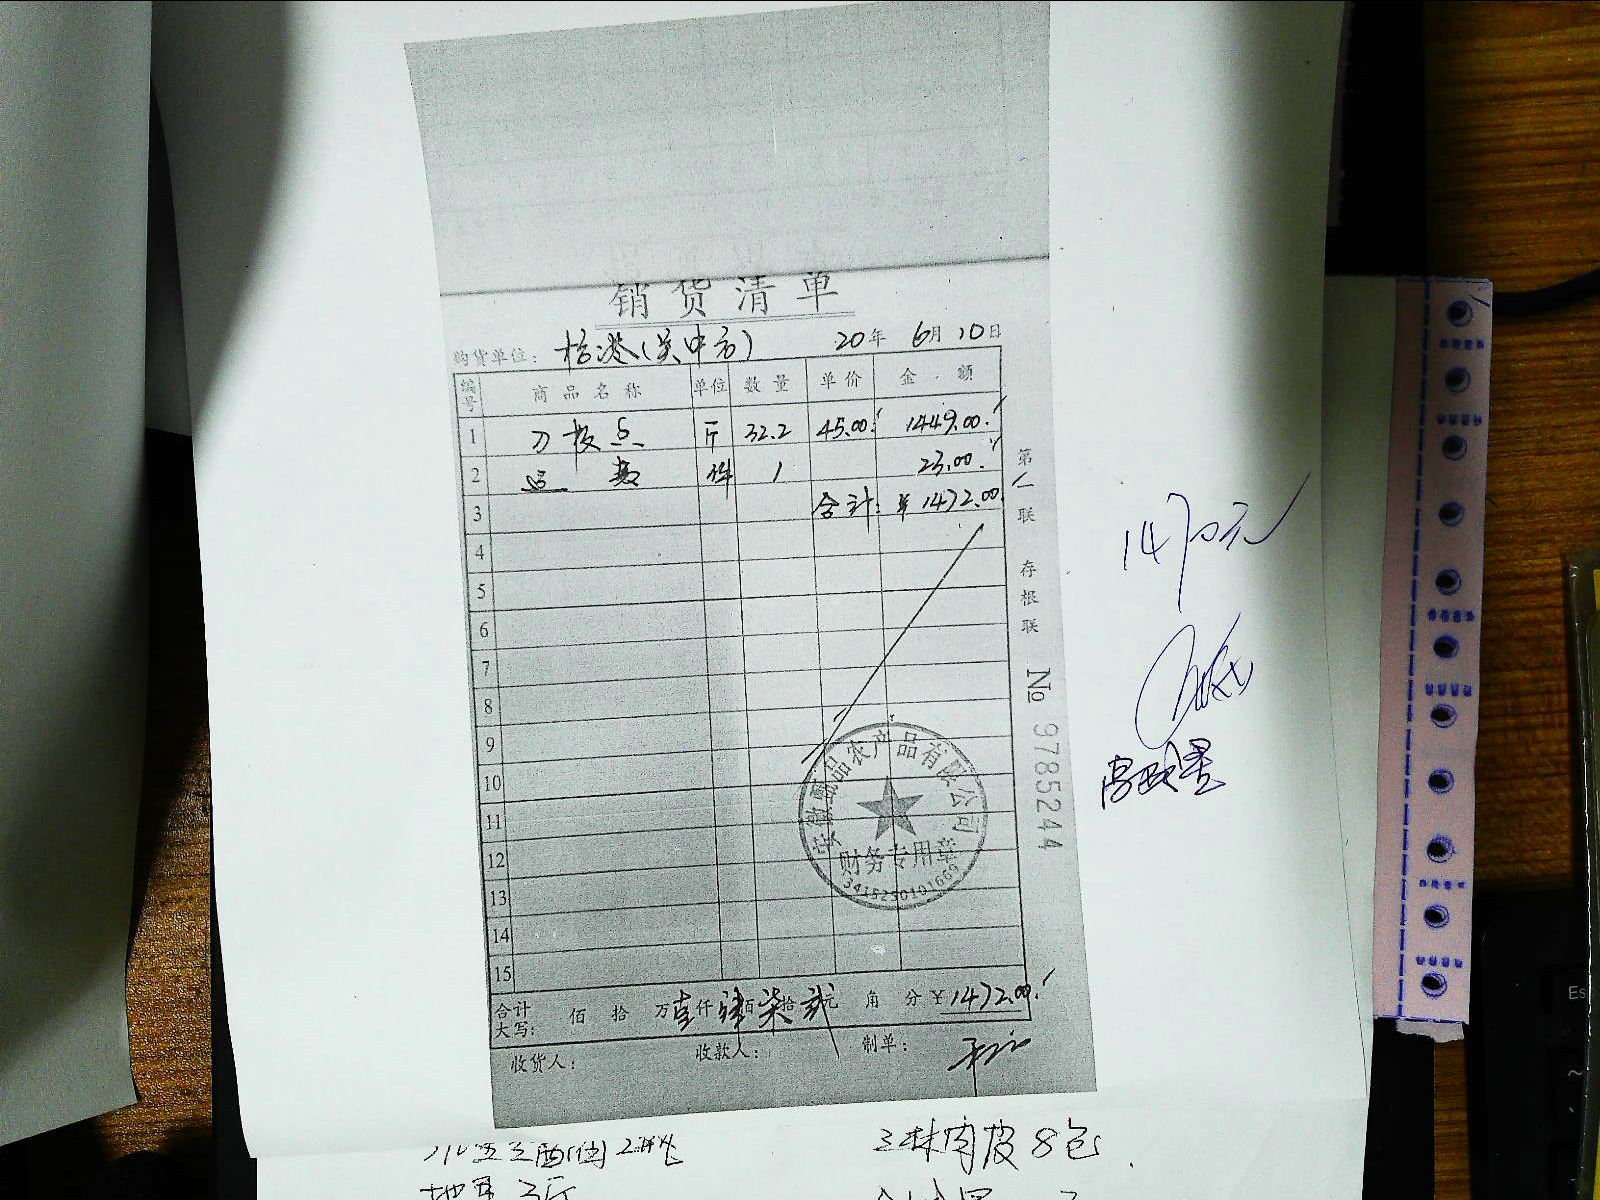 销货清单
购货单位: 桂港(吴中市) 20年 6月 10日
编号 商品名称 单位 数量 单价 金额
1 刀板 斤 32.2 45.00 1449.00
2 运费 件 1 23.00
3 合计: ¥1472.00
4
5
6
7
8
9
10
11
12
13
14
15
合计大写: 佰 拾 万 壹仟 肆佰 柒拾 贰元 角 分 ¥1472.00
收货人: 收款人: 制单:
第一联 存根联 No 9785244
品农产品有限公司
财务专用章
1470元
3 斤
肉皮 8包